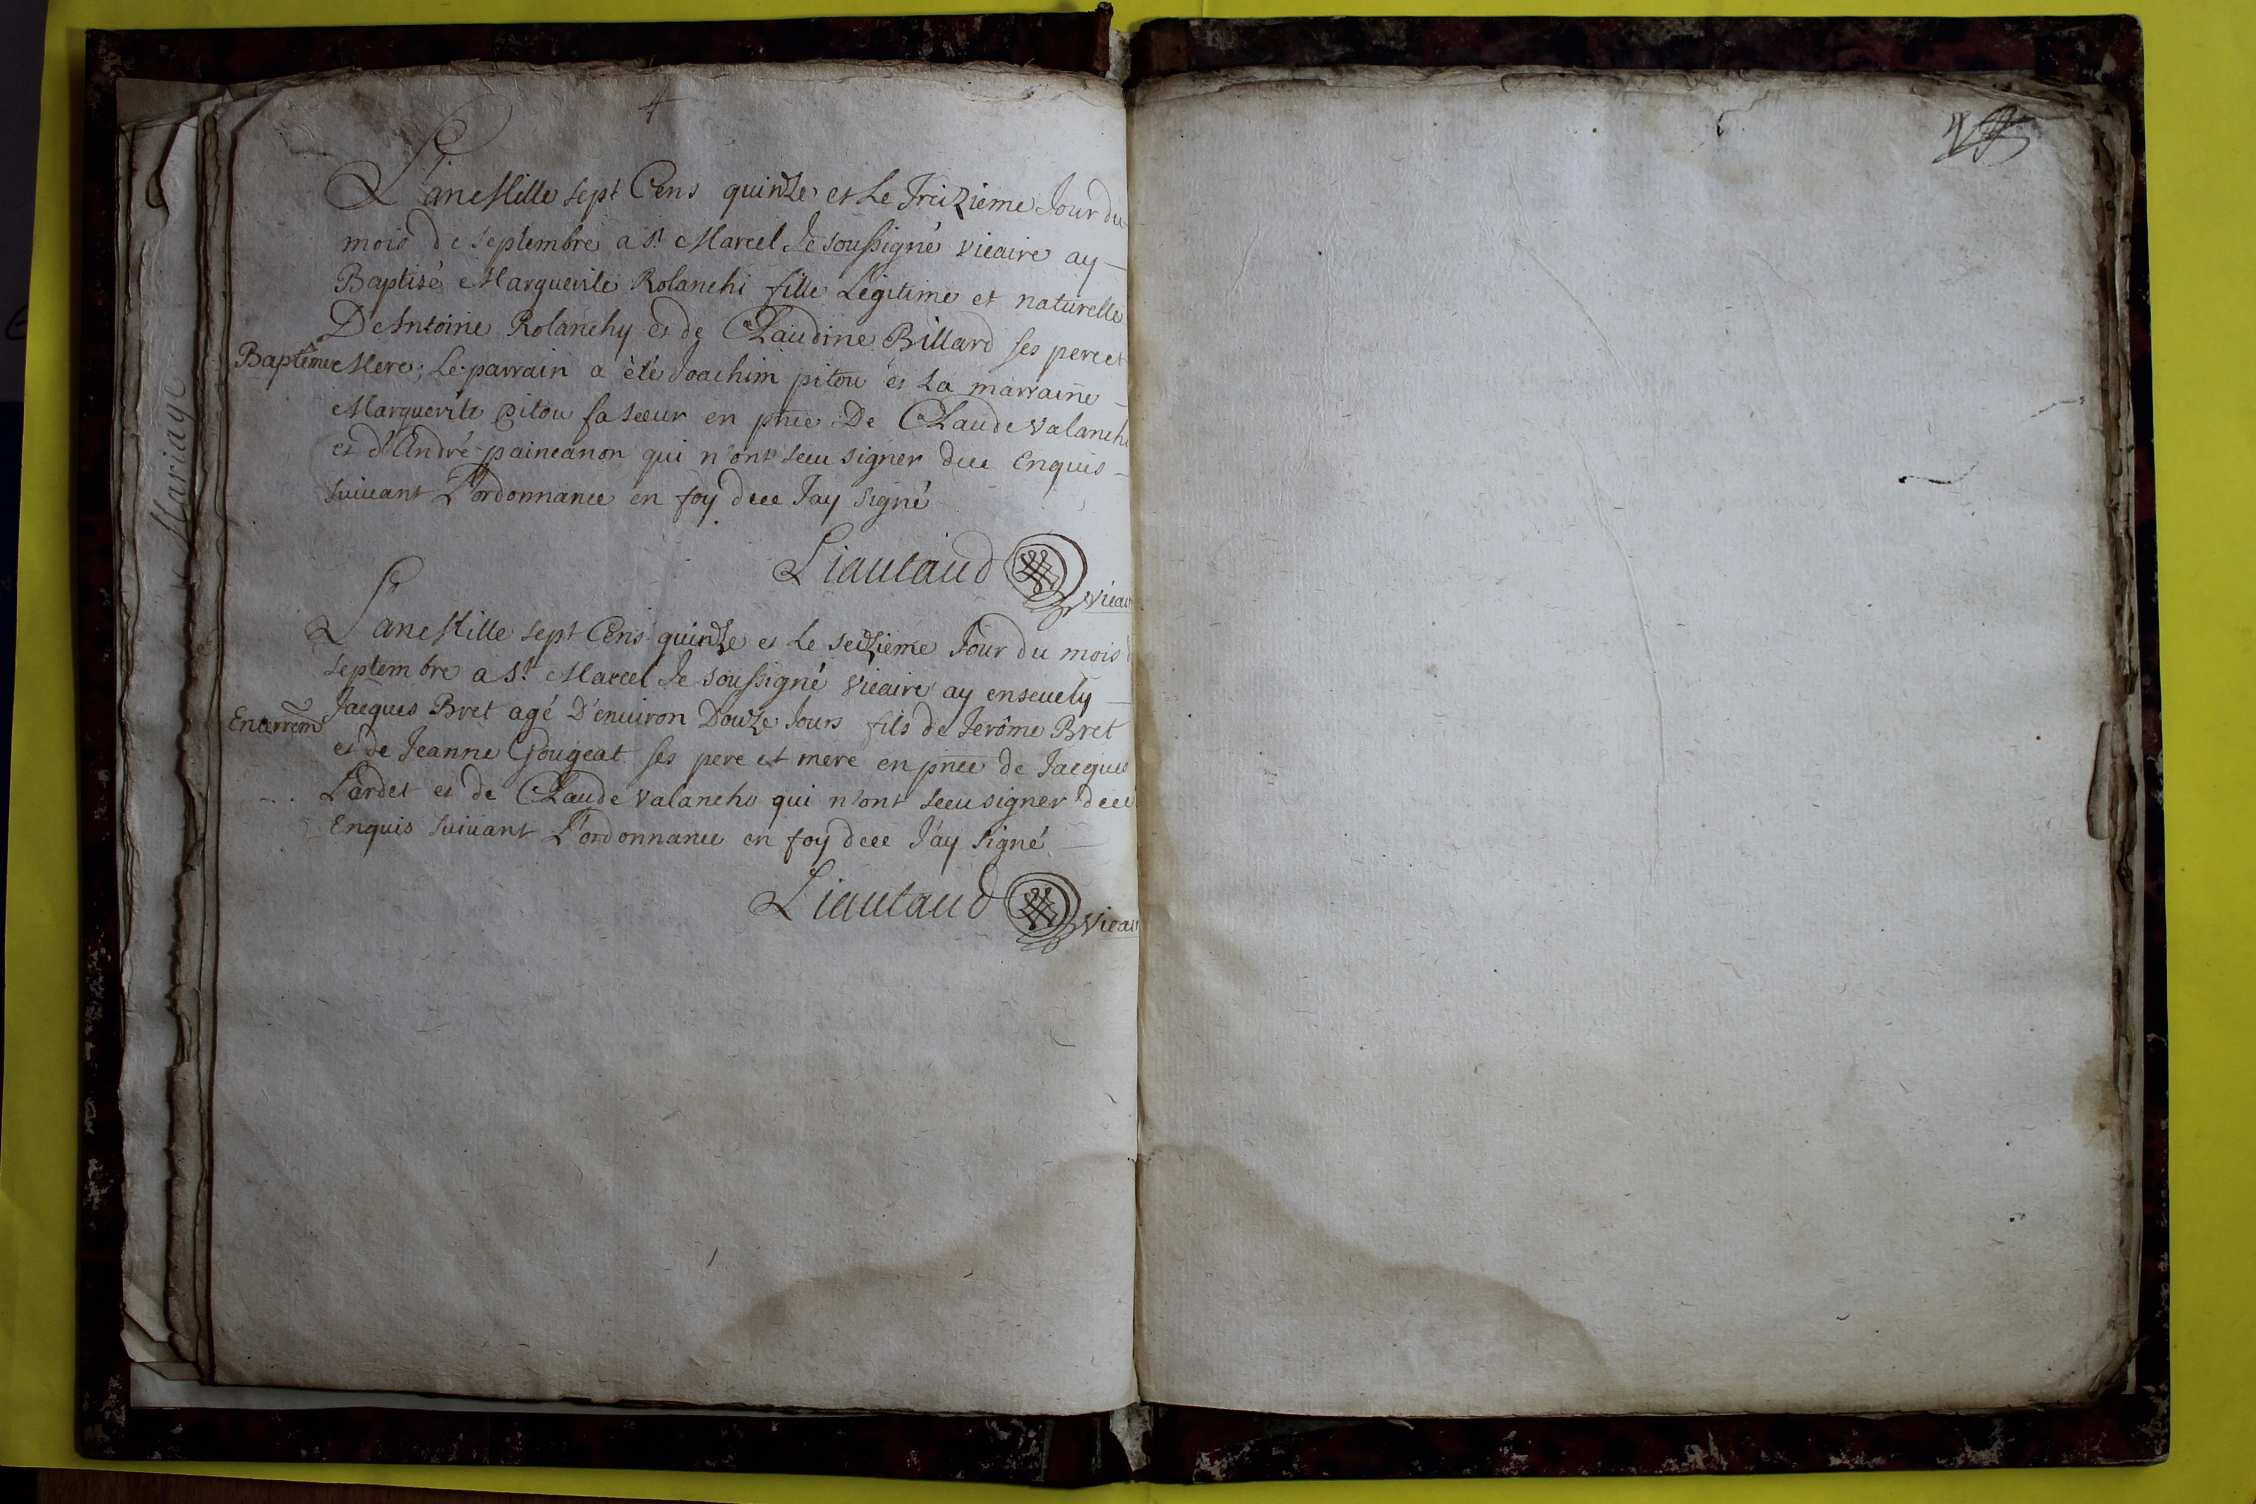 4
L'an Mille sept Cens quinze et Le Treizieme Jour du
mois de septembre a St Marcel Je soussigné vicaire ay
Baptisé Marguerite Rolanchi fille Legitime et naturelle
D'Antoine Rolanchy et de Claudine Billard ses pere et
Baptême
Mere; Le parrain a èté Joachim pitou et La marraine
Marguerite Pitou sa sœur en pnce De Claude Valanch
et d'André paincanon qui n'ont sceu signer dce Enquis
suivant L'ordonnance en foy dece Jay signé
Liautaud vicair
L'an Mille sept Cens quinze et Le seizieme Jour du mois d
septembre a St Marcel Je soussigné vicaire ay ensevely
Jacques Bret agé D'environ Douze Jours fils de Jerôme Bret
Enterremt
et de Jeanne Gougeat ses pere et mere en pnce de Jacques
Lardet et de Claude Valanchu qui n'ont sceu signer dece
Enquis suivant L'ordonnance en foy dece J'ay signé
Liautaud vicair
Mariage